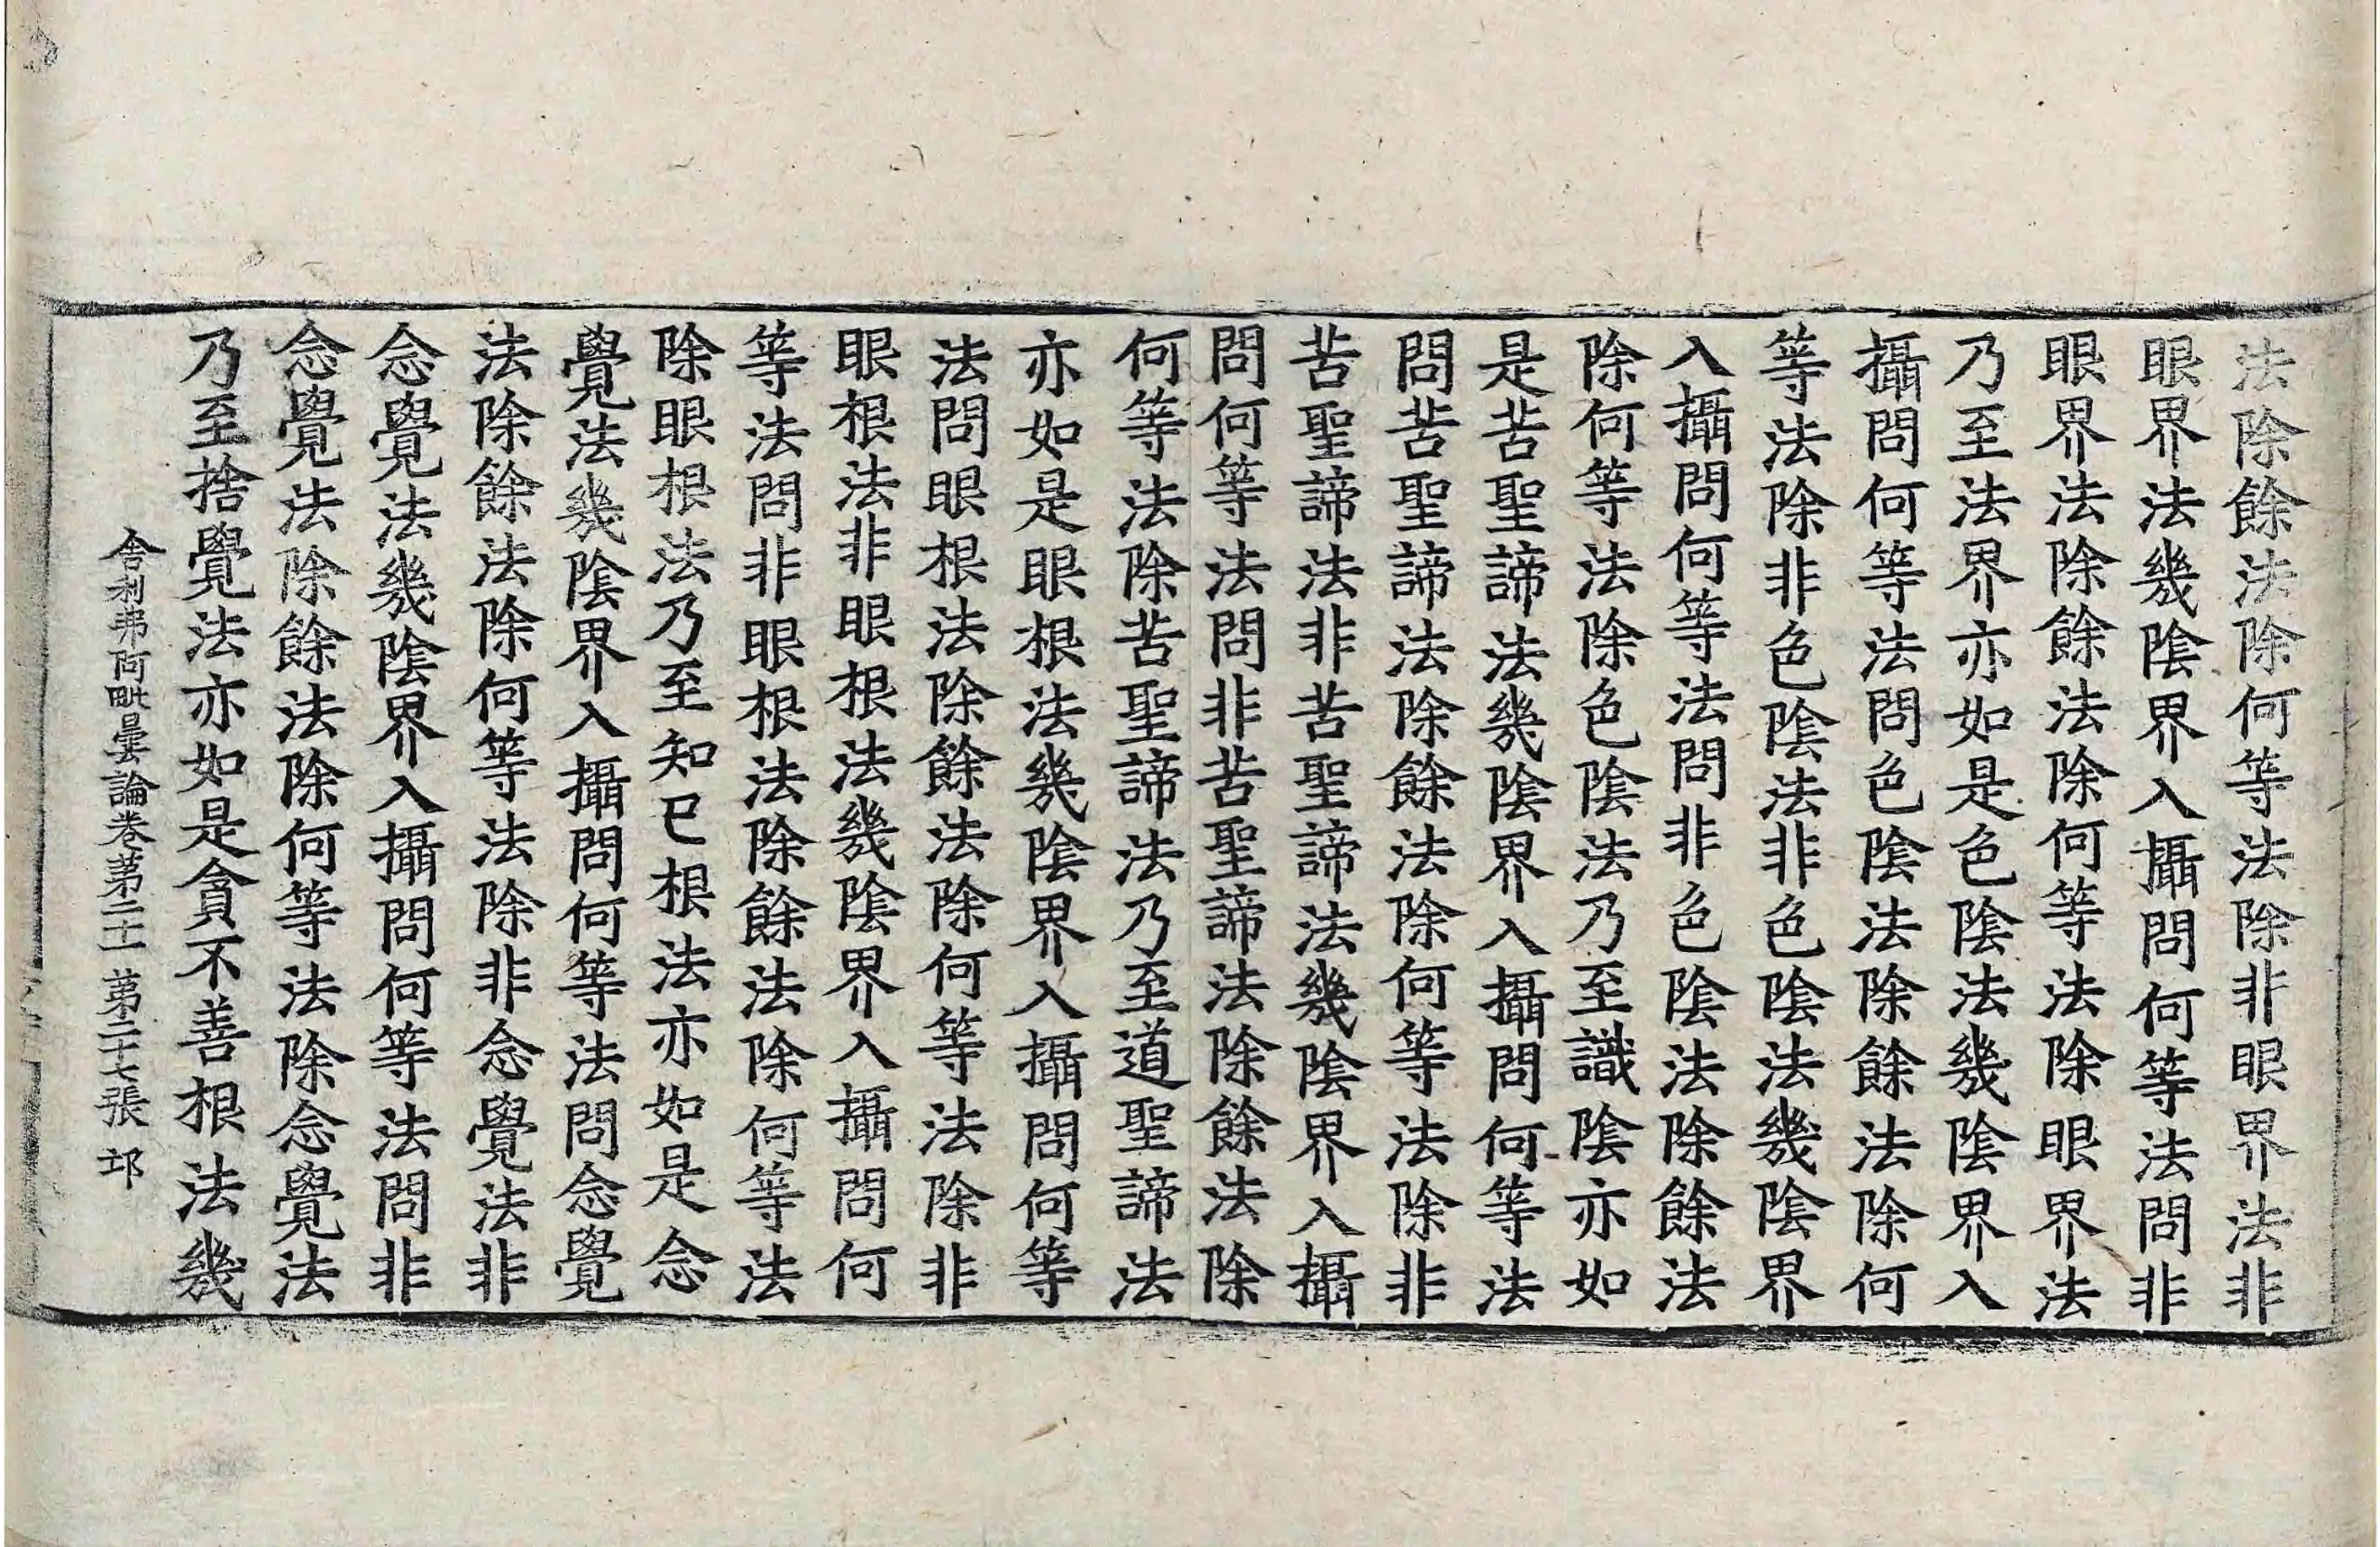 法除餘法除何等法除非眼界法非
眼界法幾陰界入攝問何等法問非
眼界法除餘法除何等法除眼界法
乃至法界亦如是色陰法幾陰界入
攝問何等法問色陰法除餘法除何
等法除非色陰法非色陰法幾陰界
入攝問何等法問非色陰法除餘法
除何等法除色陰法乃至識陰亦如
是苦聖諦法幾陰界入攝問何等法
問苦聖諦法除餘法除何等法除非
苦聖諦法非苦聖諦法幾陰界入攝
問何等法問非苦聖諦法除餘法除
何等法除苦聖諦法乃至道聖諦法
亦如是眼根法幾陰界入攝問何等
法問眼根法除餘法除何等法除非
眼根法非眼根法幾陰界入攝問何
等法問非眼根法除餘法除何等法
除眼根法乃至知已根法亦如是念
覺法幾陰界入攝問何等法問念覺
法除餘法除何等法除非念覺法非
念覺法幾陰界入攝問何等法問非
念覺法除餘法除何等法除念覺法
乃至捨覺法亦如是貪不善根法幾
舍利弗阿毗曇論卷第二十一 第二十七張 邙